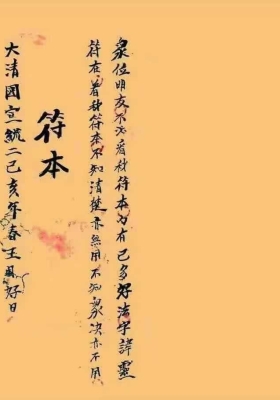 众位明友不必看秋符本为有已多好清字諱靈
符在着秋符本不知清楚亦無用不知眾决亦不用
符本
大清國宣統二己亥年春王風好日